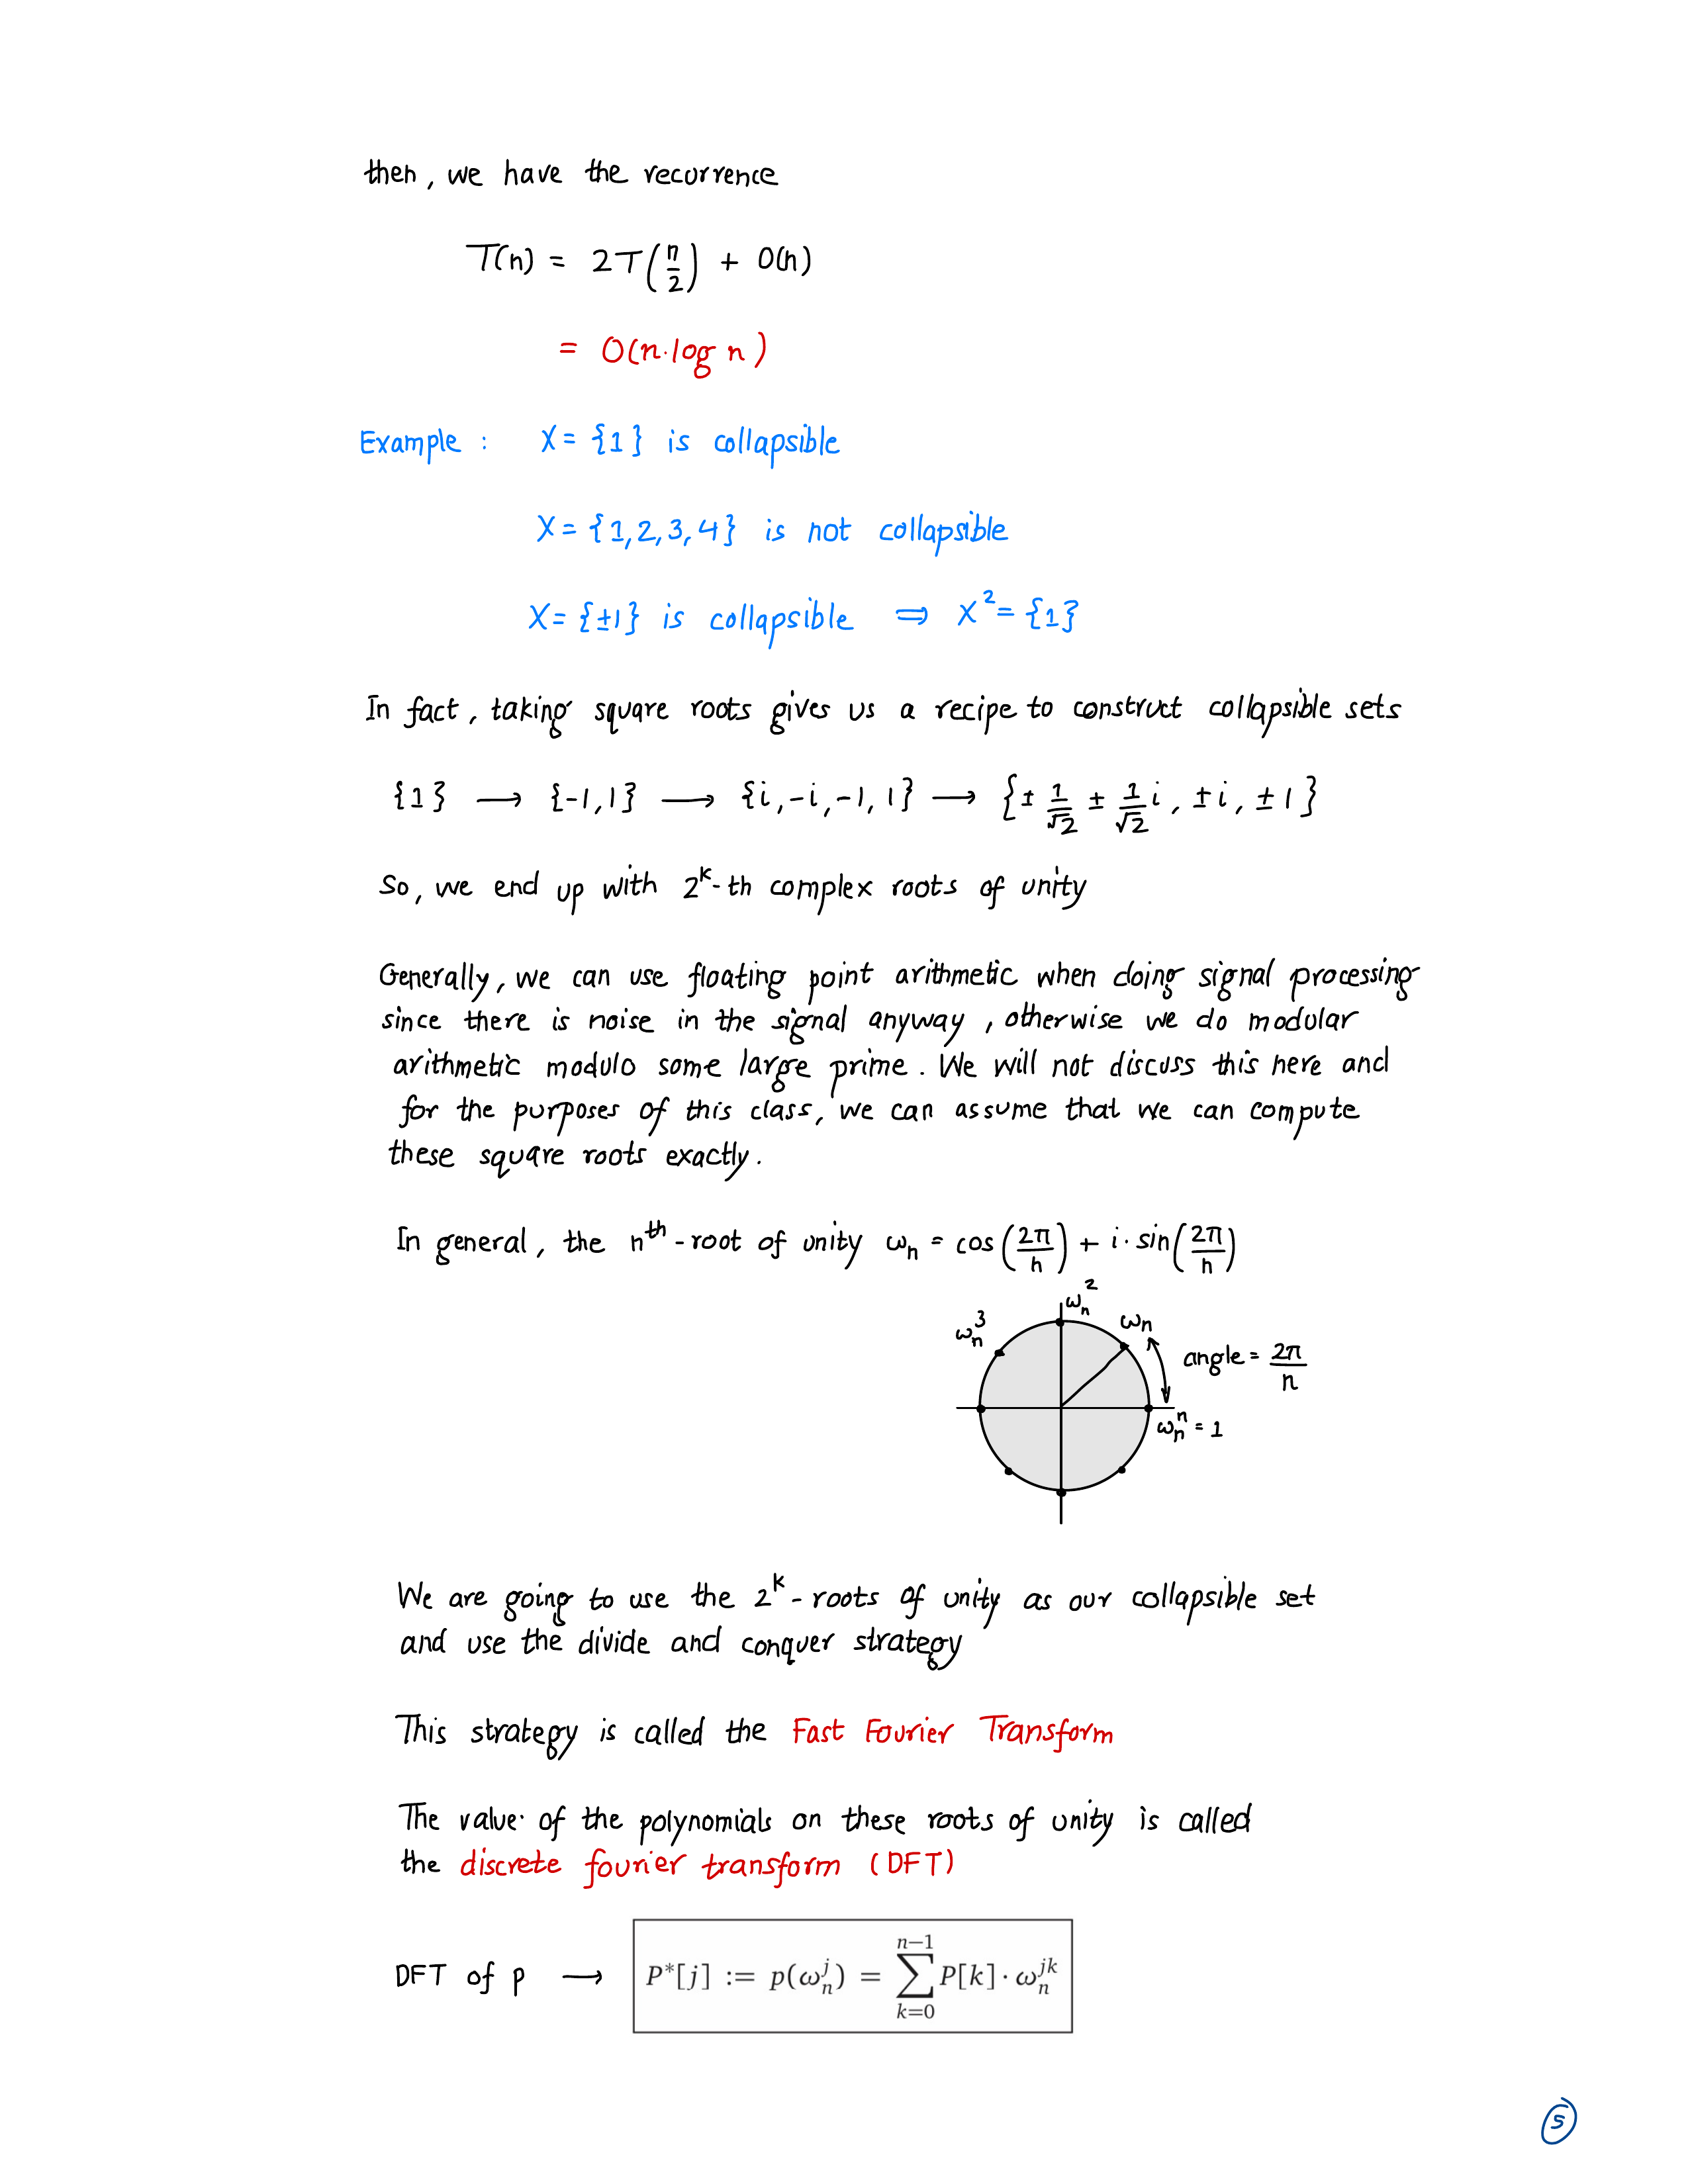 then, we have the recurrence
T(n) = 2T(n/2) + O(n)
= O(n·log n)
Example : X = {1} is collapsible
X = {1,2,3,4} is not collapsible
X = {±1} is collapsible ⟹ X² = {1}
In fact, taking square roots gives us a recipe to construct collapsible sets
{1} ⟶ {-1,1} ⟶ {i,-i,-1,1} ⟶ {± 1/√2 ± 1/√2 i, ±i, ±1}
So, we end up with 2^k-th complex roots of unity
Generally, we can use floating point arithmetic when doing signal processing
since there is noise in the signal anyway, otherwise we do modular
arithmetic modulo some large prime. We will not discuss this here and
for the purposes of this class, we can assume that we can compute
these square roots exactly.
In general, the n^th-root of unity ω_n = cos(2π/n) + i·sin(2π/n)
ω_n^2
ω_n^3
ω_n
angle = 2π/n
ω_n^n = 1
We are going to use the 2^k-roots of unity as our collapsible set
and use the divide and conquer strategy
This strategy is called the Fast Fourier Transform
The value of the polynomials on these roots of unity is called
the discrete fourier transform (DFT)
DFT of p ⟶ P*[j] := p(ω_n^j) = ∑_{k=0}^{n−1} P[k] · ω_n^{jk}
5